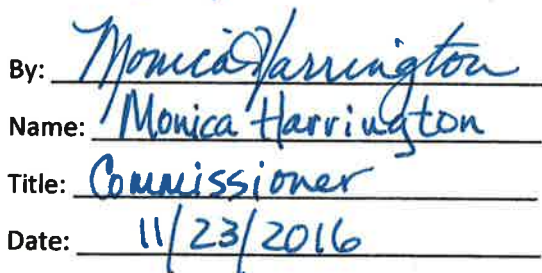 By: Monica Harrington
Name: Monica Harrington
Title: Commissioner
Date: 11/23/2016